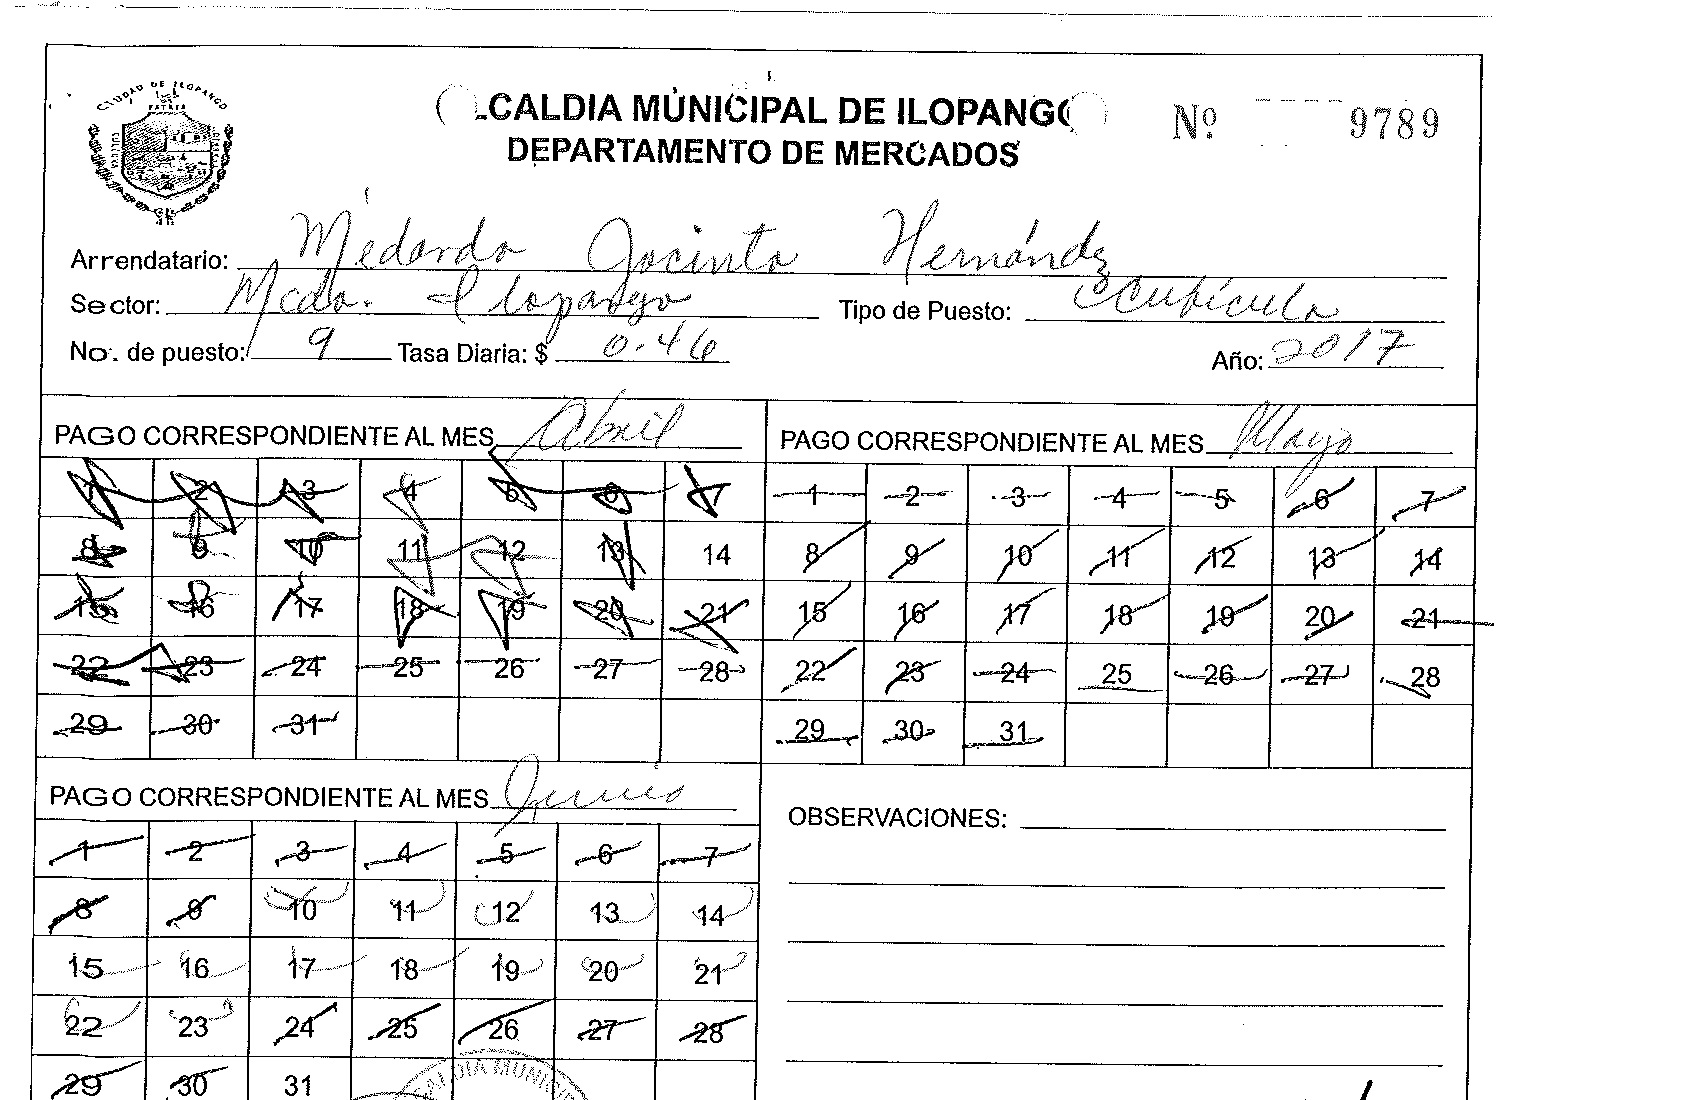 CIUDAD DE ILOPANGO
PATRIA
ALCALDIA MUNICIPAL DE ILOPANGO
Nº 9789
DEPARTAMENTO DE MERCADOS
Arrendatario: Medardo Jacinto Hernández
Sector: Mcdo. Ilopango Tipo de Puesto: Cubícula
No. de puesto: 9 Tasa Diaria: $ 0.46 Año: 2017
PAGO CORRESPONDIENTE AL MES Abril
1 2 3 4 5 6 7
8 9 10 11 12 13 14
15 16 17 18 19 20 21
22 23 24 25 26 27 28
29 30 31
PAGO CORRESPONDIENTE AL MES Mayo
1 2 3 4 5 6 7
8 9 10 11 12 13 14
15 16 17 18 19 20 21
22 23 24 25 26 27 28
29 30 31
PAGO CORRESPONDIENTE AL MES Junio
1 2 3 4 5 6 7
8 9 10 11 12 13 14
15 16 17 18 19 20 21
22 23 24 25 26 27 28
29 30 31
CALDIA MUNICIP
OBSERVACIONES: